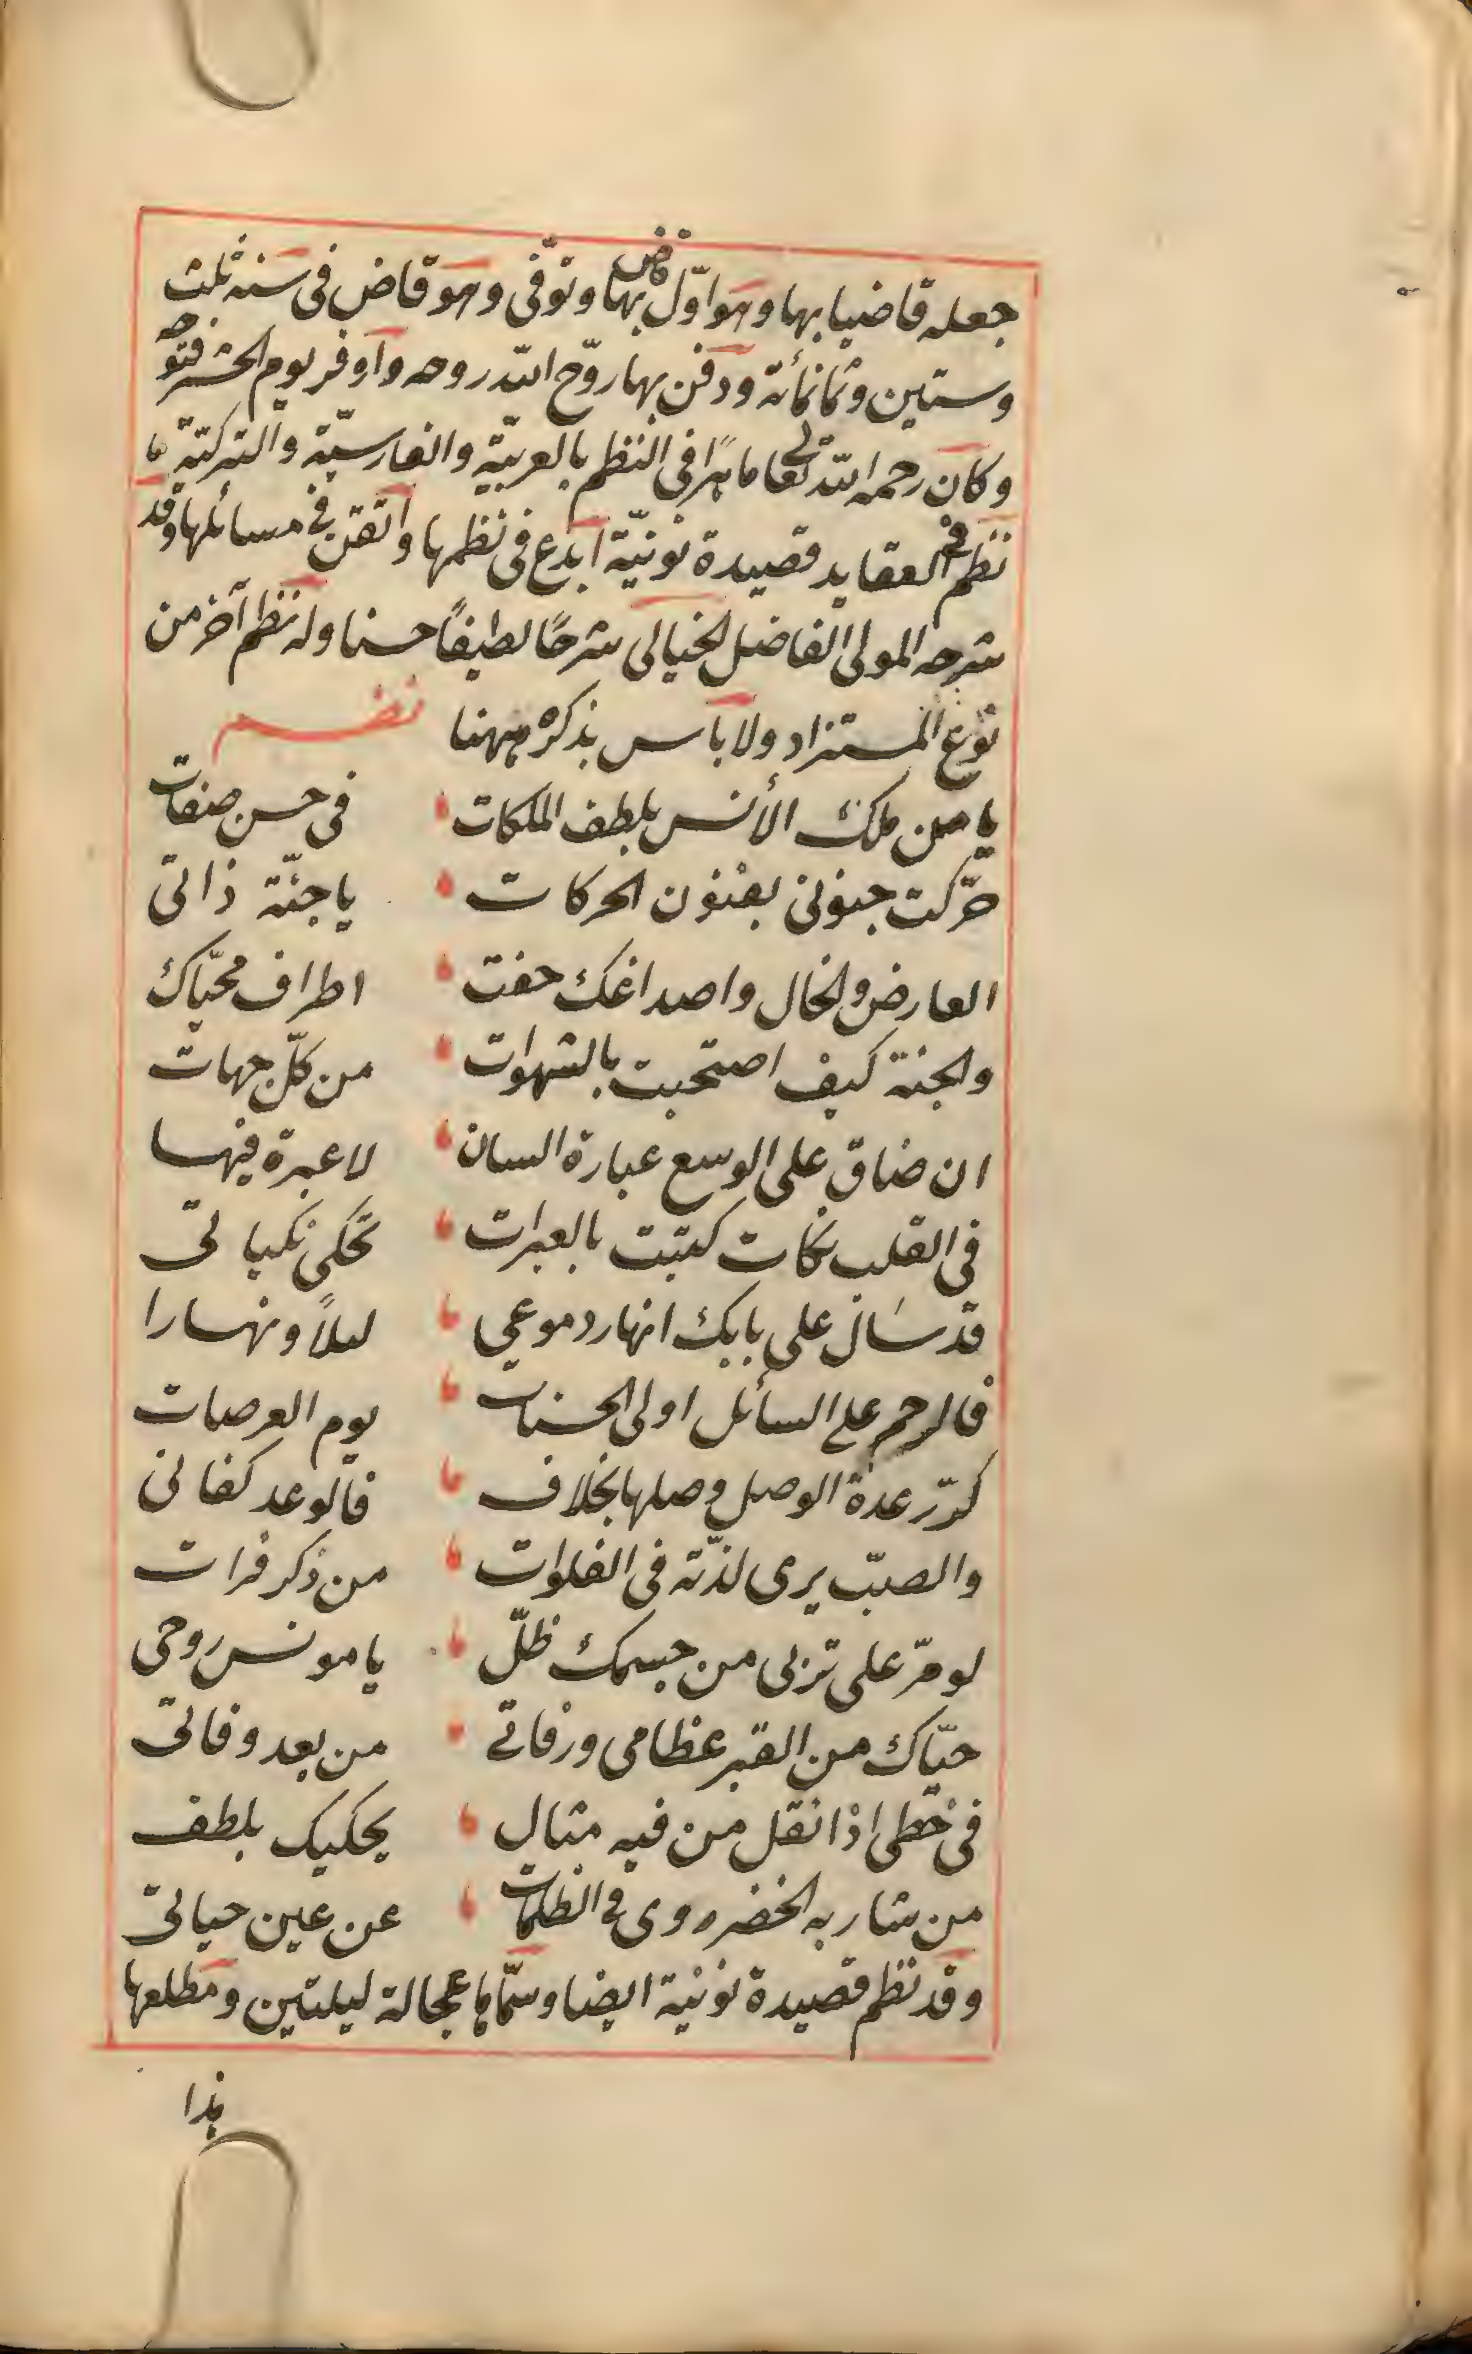 جعله قاضيا بها وهو اوّل قاض بها وتوفّى وهو قاض فى سنة ثلث
وستين وثمانمائة ودفن بها روّح الله روحه واوفر يوم الحشر فتوحه
وكان رحمه الله تعالى ماهرًا فى النظم بالعربيّة والفارسيّة والتركيّة
نظم فى العقايد قصيدة نونيّة ابدع فى نظمها واتقن فى مسائلها وقد
شرحه المولى الفاضل الخيالى شرحًا لطيفًا حسنا وله نظم آخر من
نوع المستزاد ولا بأس بذكره ههنا نظم
يا من ملك الأنس بلطف الملكات فى حسن صفات
حرّكت جنونى بفنون الحركات يا جنّة ذاتى
العارض والخال واصداغك حفت اطراف محيّاك
والجنة كيف اصتحبت بالشهوات من كلّ جهات
ان ضاق على الوسع عبارة السان لا عبرة فيها
فى القلب نكات كتبت بالعبرات تحكى نكباتى
قد سال على بابك انهار دموعى ليلاً ونهارا
فالرحم على السائل اولى الحسنات يوم العرصات
كرّر عدة الوصل وصلها بخلاف فالوعد كفانى
والصبّ يرى لذّته فى الفلوات من ذكر فرات
لو مرّ على تربى من جسمك ظلّ يا مونس روحى
حيّاك من القبر عظامى ورفاتى من بعد وفاتى
فى خطى اذا نقل من فيه مثال يحكيك بلطف
من شاربه الخضر روى فى الظلمات عن عين حياتى
وقد نظم قصيدة نونية ايضا وسمّاها عجالة ليلتين ومطلعها
هذا